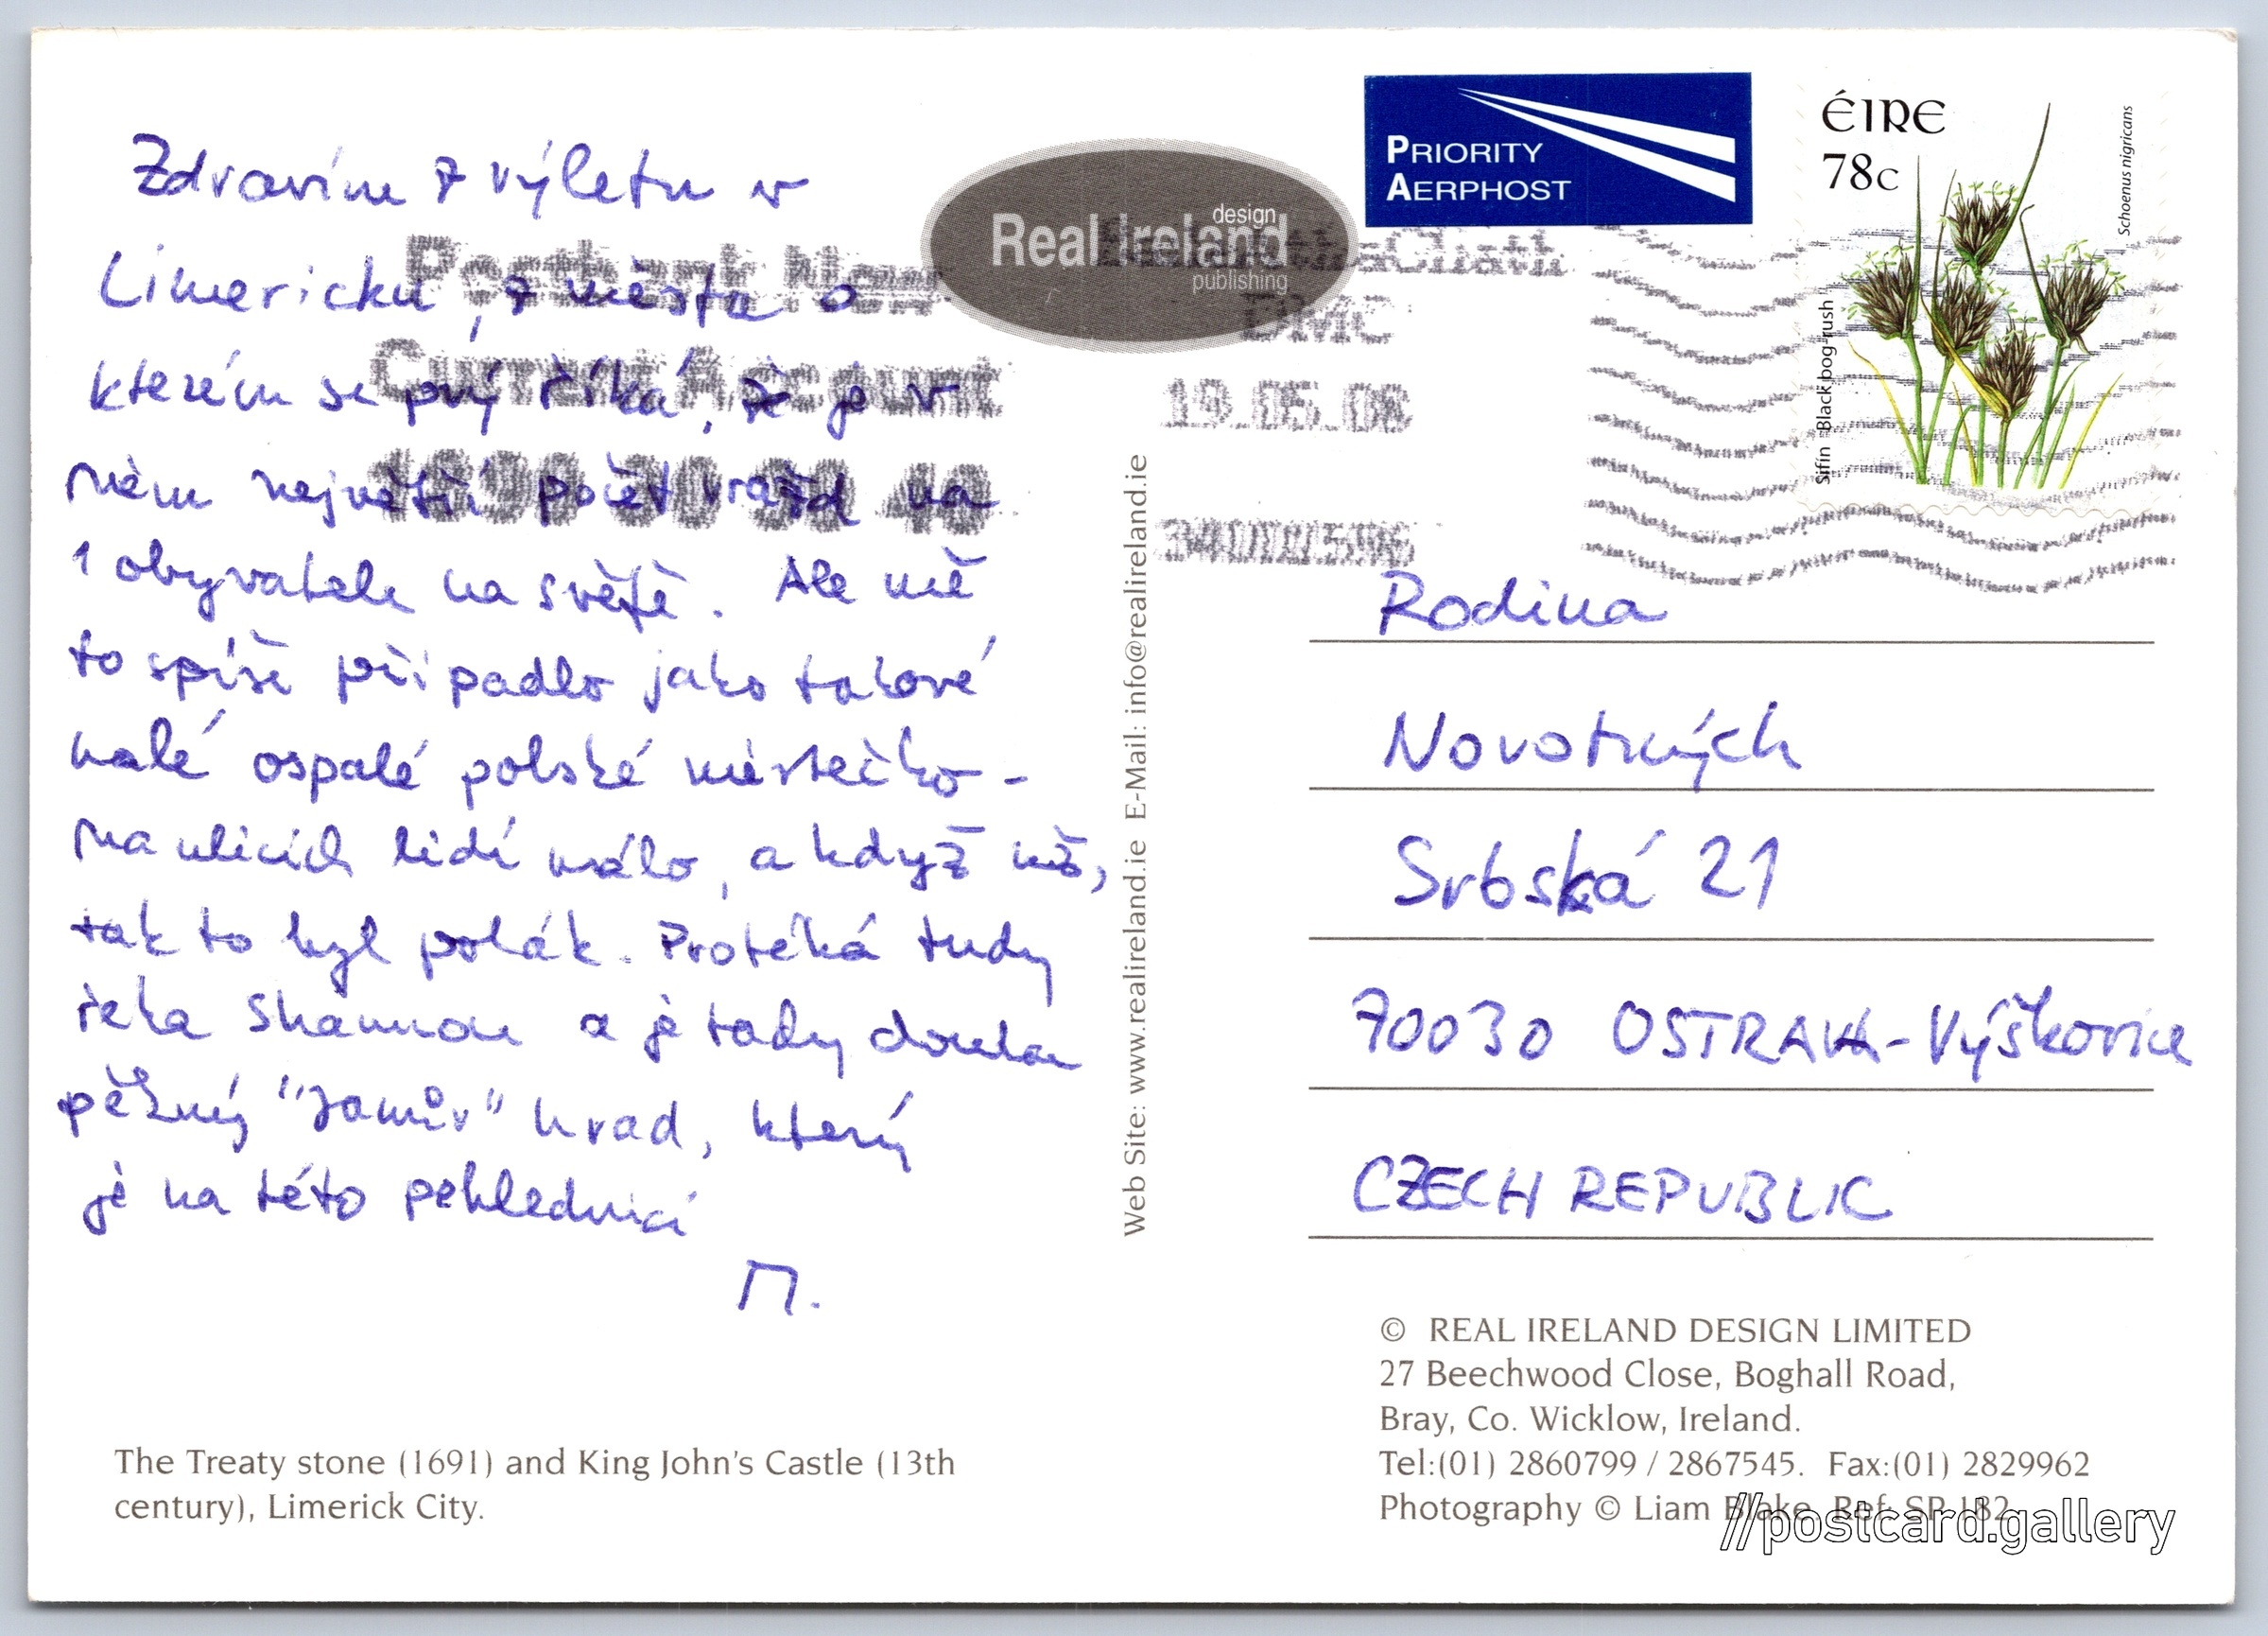 Zdravím z výletu v
Limericku, z města o
kterém se prý říká, že je v
něm největší počet vražd na
1 obyvatele na světě. Ale mě
to spíše připadlo jako takové
malé ospalé polské městečko -
na ulicích lidí málo, a když už,
tak to byl polák. Protéká tudy
řeka Shannon a je tady docela
pěkný "Janův" hrad, který
je na této pohlednici
M.
The Treaty stone (1691) and King John's Castle (13th
century), Limerick City.
Postbank New
Current Account
40
Real Ireland
design
publishing
Web Site: www.realireland.ie E-Mail: info@realireland.ie
PRIORITY
AERPHOST
ÉIRE
78c
Schoenus nigricans
Sifín Black bog-rush
Cliath
DMC
19.05.08
Rodina
Novotných
Srbská 21
70030 OSTRAVA-Výškovice
CZECH REPUBLIC
© REAL IRELAND DESIGN LIMITED
27 Beechwood Close, Boghall Road,
Bray, Co. Wicklow, Ireland.
Tel:(01) 2860799 / 2867545. Fax:(01) 2829962
Photography © Liam Blake. Ref: SP 182
//postcard.gallery